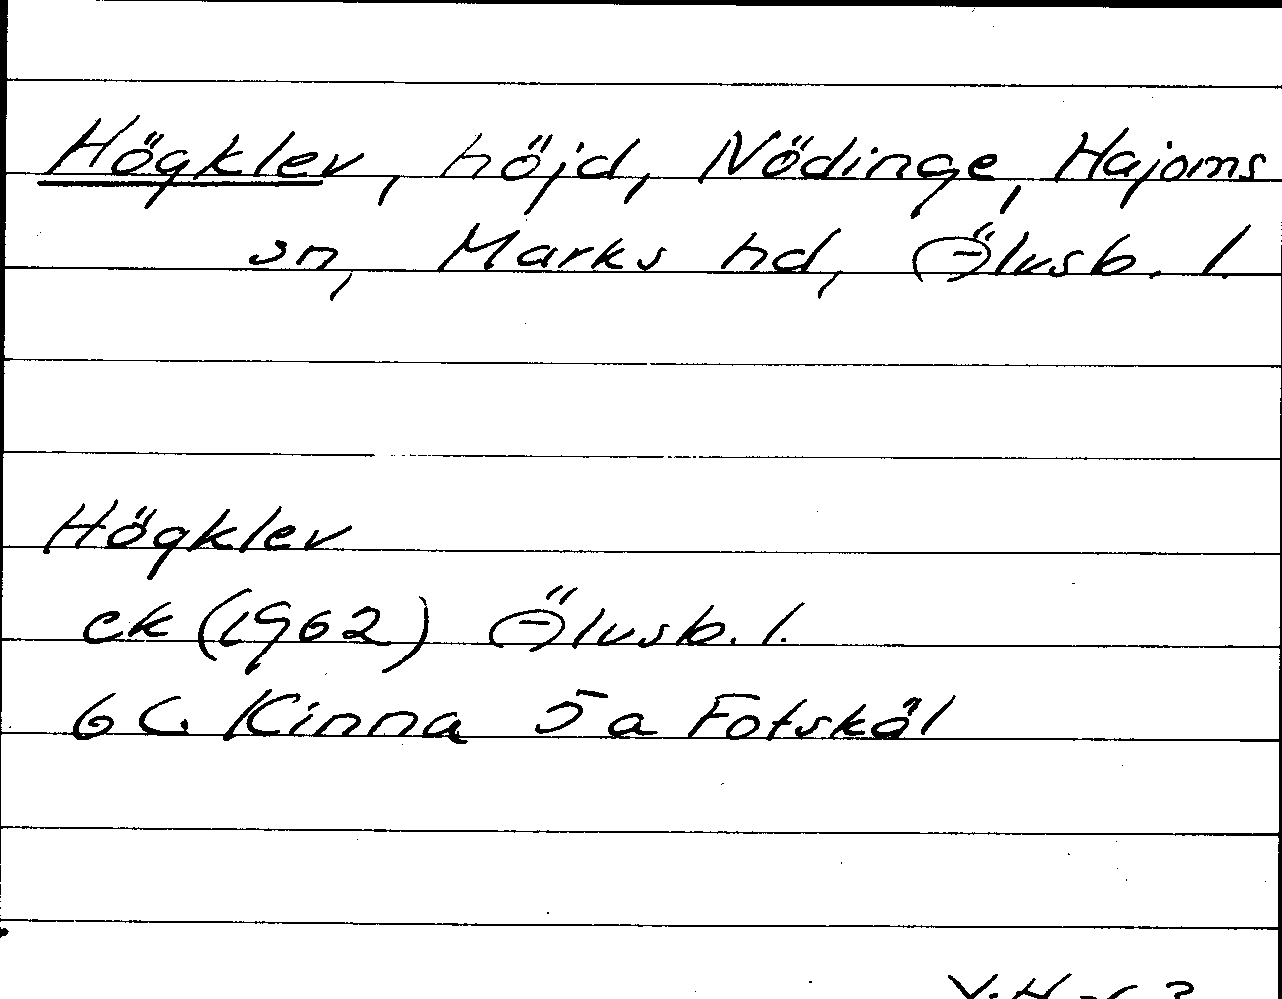 Högklev, höjd, Nödinge, Hajoms
sn, Marks hd, Älvsb. l.
Högklev
ek (1962) Älvsb. l.
6 C. Kinna 5a Fotskäl